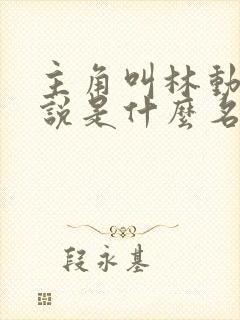 主角叫林動
說是什麼名
段永基